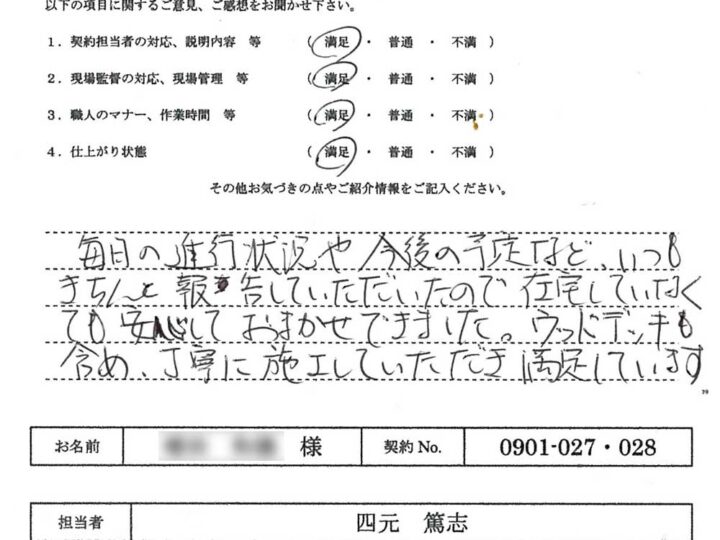 以下の項目に関するご意見、ご感想をお聞かせ下さい。
1．契約担当者の対応、説明内容 等 （ 満足 ・ 普通 ・ 不満 ）
2．現場監督の対応、現場管理 等 （ 満足 ・ 普通 ・ 不満 ）
3．職人のマナー、作業時間 等 （ 満足 ・ 普通 ・ 不満 ）
4．仕上がり状態 （ 満足 ・ 普通 ・ 不満 ）
その他お気づきの点やご紹介情報をご記入ください。
毎日の進行状況や今後の予定など、いつも
きちんと報告していただいたので在宅していなく
ても安心しておまかせできました。ウッドデッキも
含め、丁寧に施工していただき満足しています
お名前 様 契約 No. 0901-027・028
担当者 四元 篤志